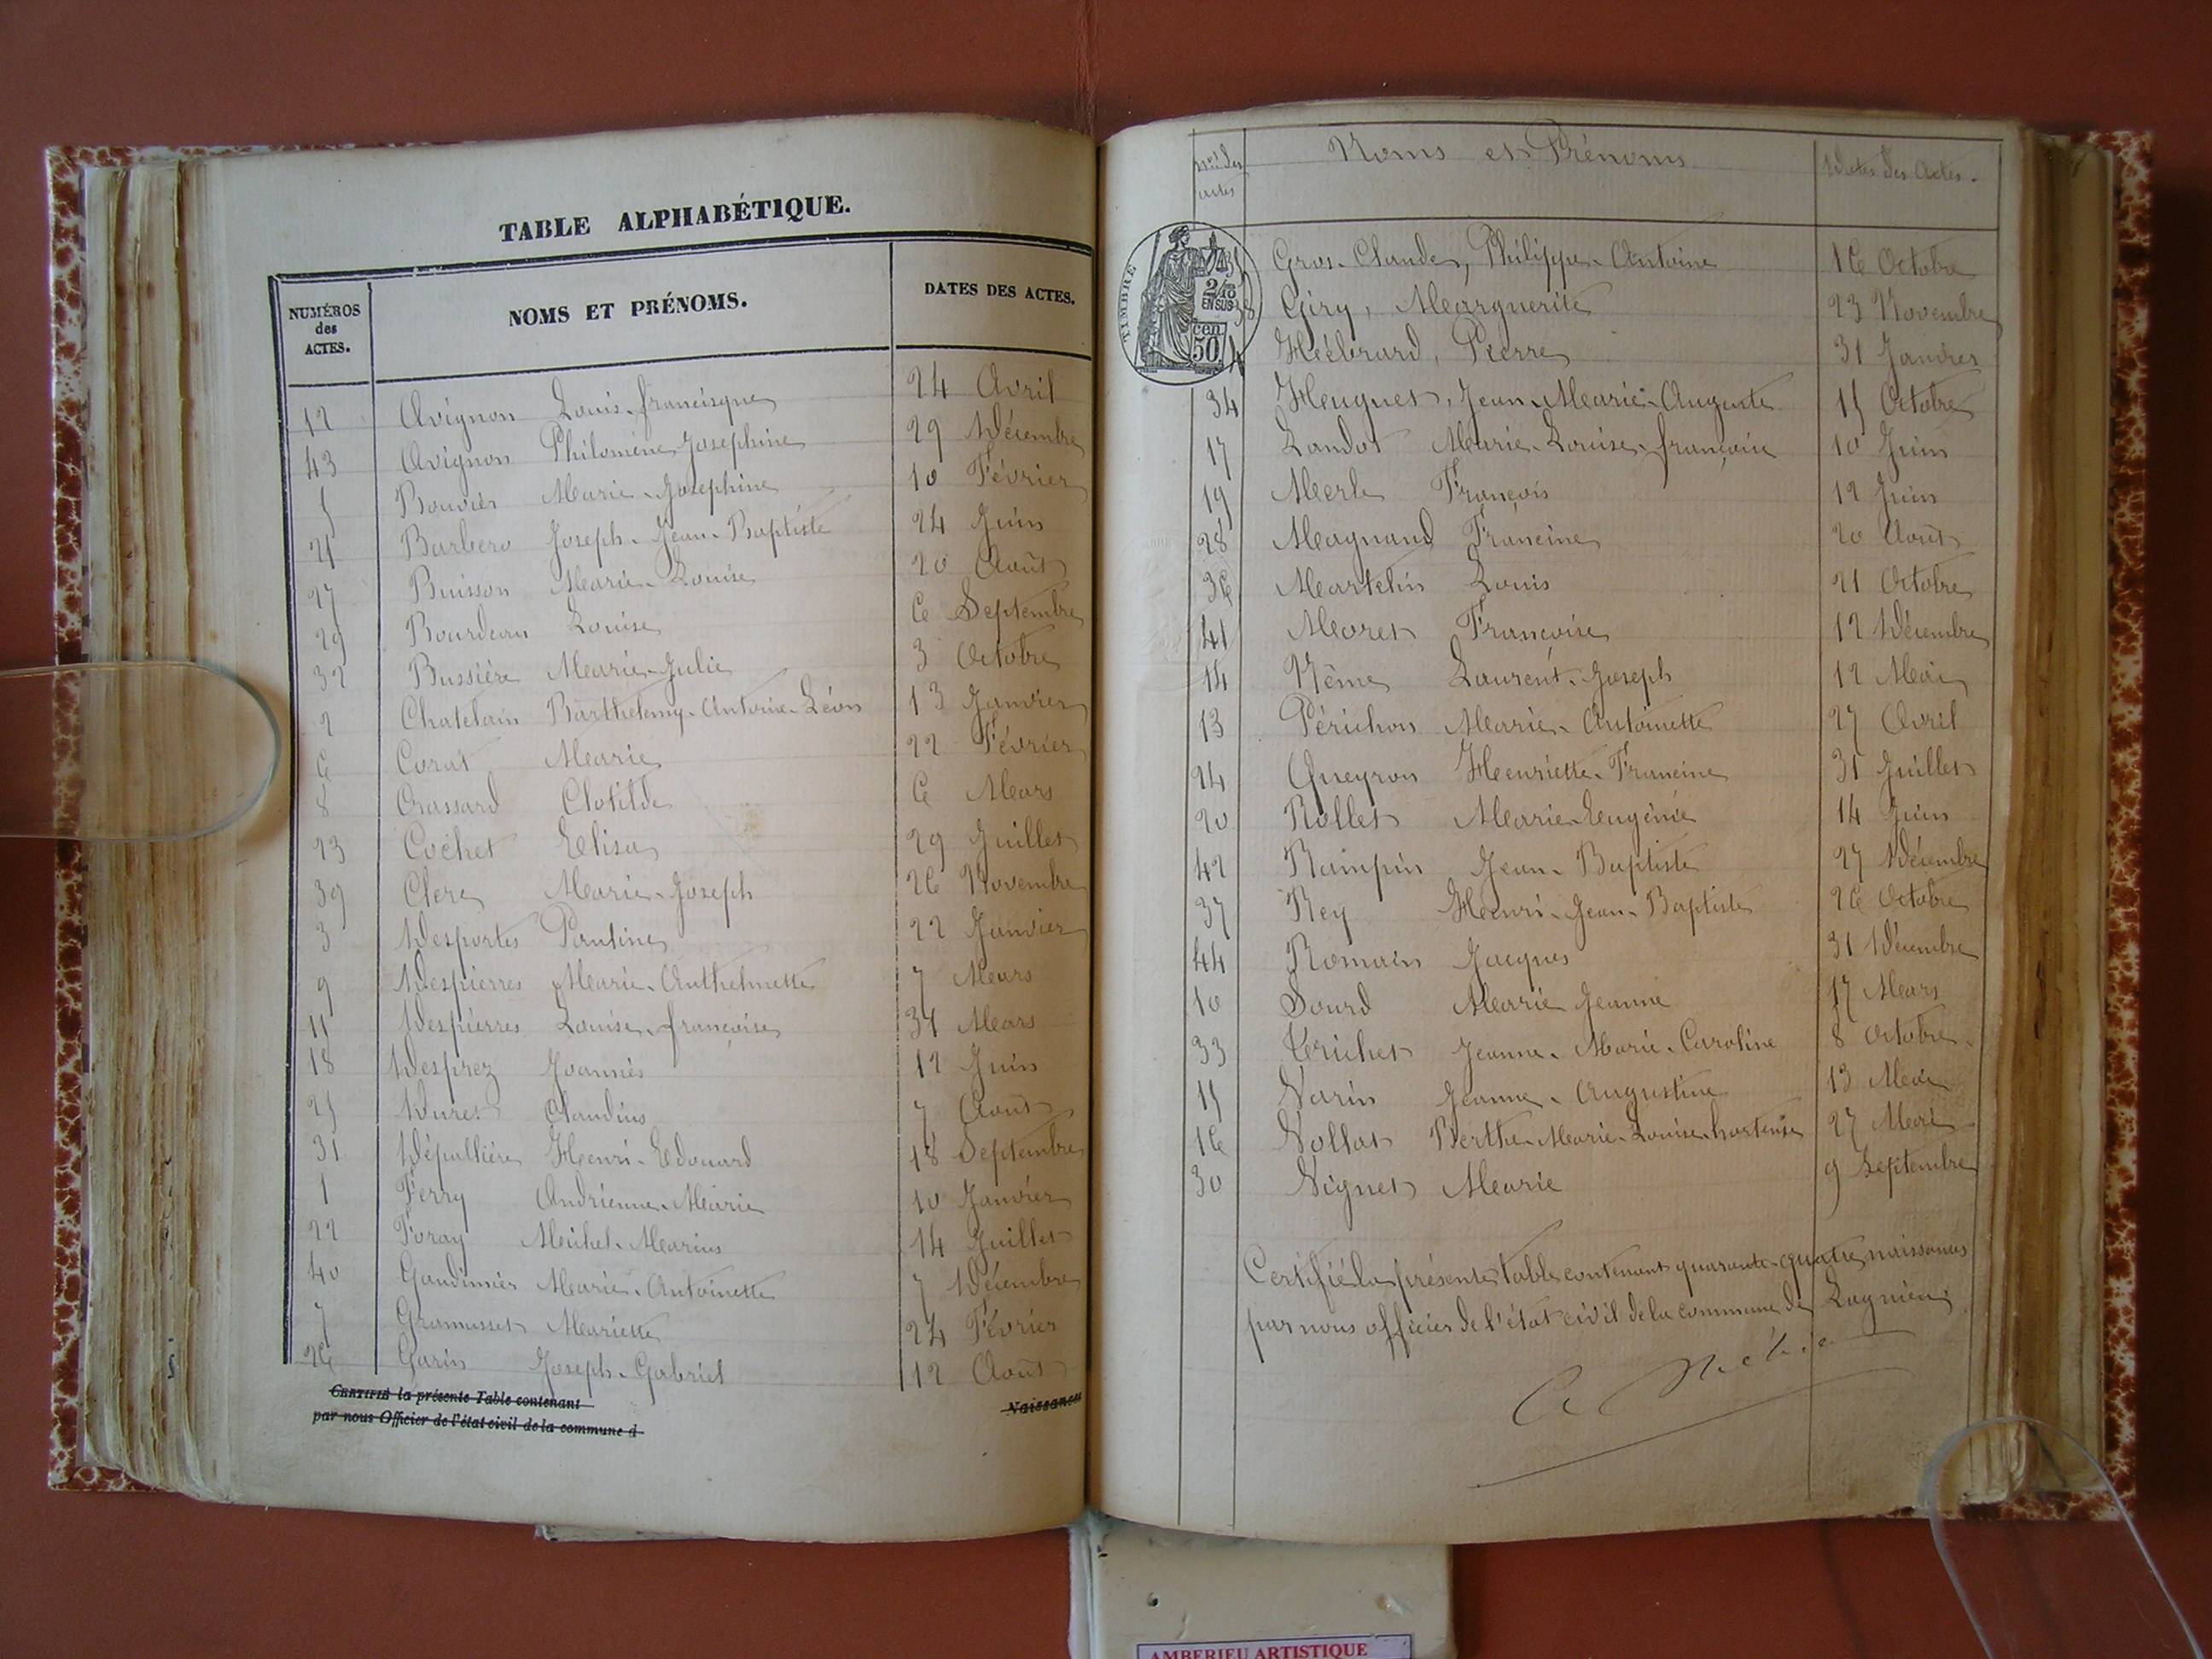 TABLE ALPHABÉTIQUE.
NUMÉROS des ACTES. NOMS ET PRÉNOMS. DATES DES ACTES.
12 Avignon Louis-francisque 24 Avril
43 Avignon Philomène Josephine 29 Décembre
5 Bouvier Marie-Josephine 10 Février
21 Barbero Joseph-Jean-Baptiste 24 Juin
27 Buisson Marie-Louise 20 Août
29 Bourdeau Louise 6 Septembre
32 Bussière Marie-Julie 3 Octobre
2 Chatelain Barthelemy-Antoine-Léon 13 Janvier
6 Corat Marie 22 Février
8 Crassard Clotilde 6 Mars
23 Cochet Elisa 29 Juillet
39 Clerc Marie-Joseph 26 Novembre
3 Desportes Pauline 22 Janvier
9 Despierres Marie-Anthelmette 7 Mars
11 Despierres Louise-françoise Mars
18 Desprez Joannès 12 Juin
25 Duret Claudius 7 Août
31 Dépallière Henri-Edouard 18 Septembre
1 Ferry Andrienne-Marie 10 Janvier
22 Foray Michel-Marius 14 Juillet
40 Gaudinier Marie-Antoinette 7 Décembre
7 Gramusset Mariette 24 Février
26 Garin Joseph-Gabriel 12 Août
CERTIFIÉ la présente Table contenant Naissances
par nous Officier de l'état civil de la commune d
Nos des actes Noms et Prénoms Dates des Actes.
TIMBRE
2/10
EN SUS
50 cen
35 Gros-Claude, Philippe-Antoine 16 Octobre
38 Giry, Marguerite 23 Novembre
4 Hébrard, Pierre 31 Janvier
34 Hugues, Jean-Marie-Auguste 15 Octobre
17 Landot Marie-Louise-françoise 10 Juin
19 Merle François 12 Juin
28 Magnand Francine 20 Août
36 Martelin Louis 21 Octobre
41 Moret Françoise 12 Décembre
14 Nême Laurent-Joseph 12 Mai
13 Périchon Marie-Antoinette 27 Avril
24 Queyron Henriette-Francine 31 Juillet
20 Rollet Marie-Eugénie 14 Juin
42 Rampin Jean-Baptiste 27 Décembre
37 Rey Henri-Jean-Baptiste 26 Octobre
44 Romain Jacques 31 Décembre
10 Sourd Marie Jeanne 17 Mars
33 Trichet Jeanne-Marie-Caroline 8 Octobre
15 Varin Jeanne-Augustine 13 Mai
16 Vollat Berthe-Marie-Louise-hortense 27 Mai
30 Vignet Marie 9 Septembre
Certifié la présente table contenant quarante-quatre naissances
par nous officier de l'état civil de la commune de Lagnieu
AMBERIEU ARTISTIQUE